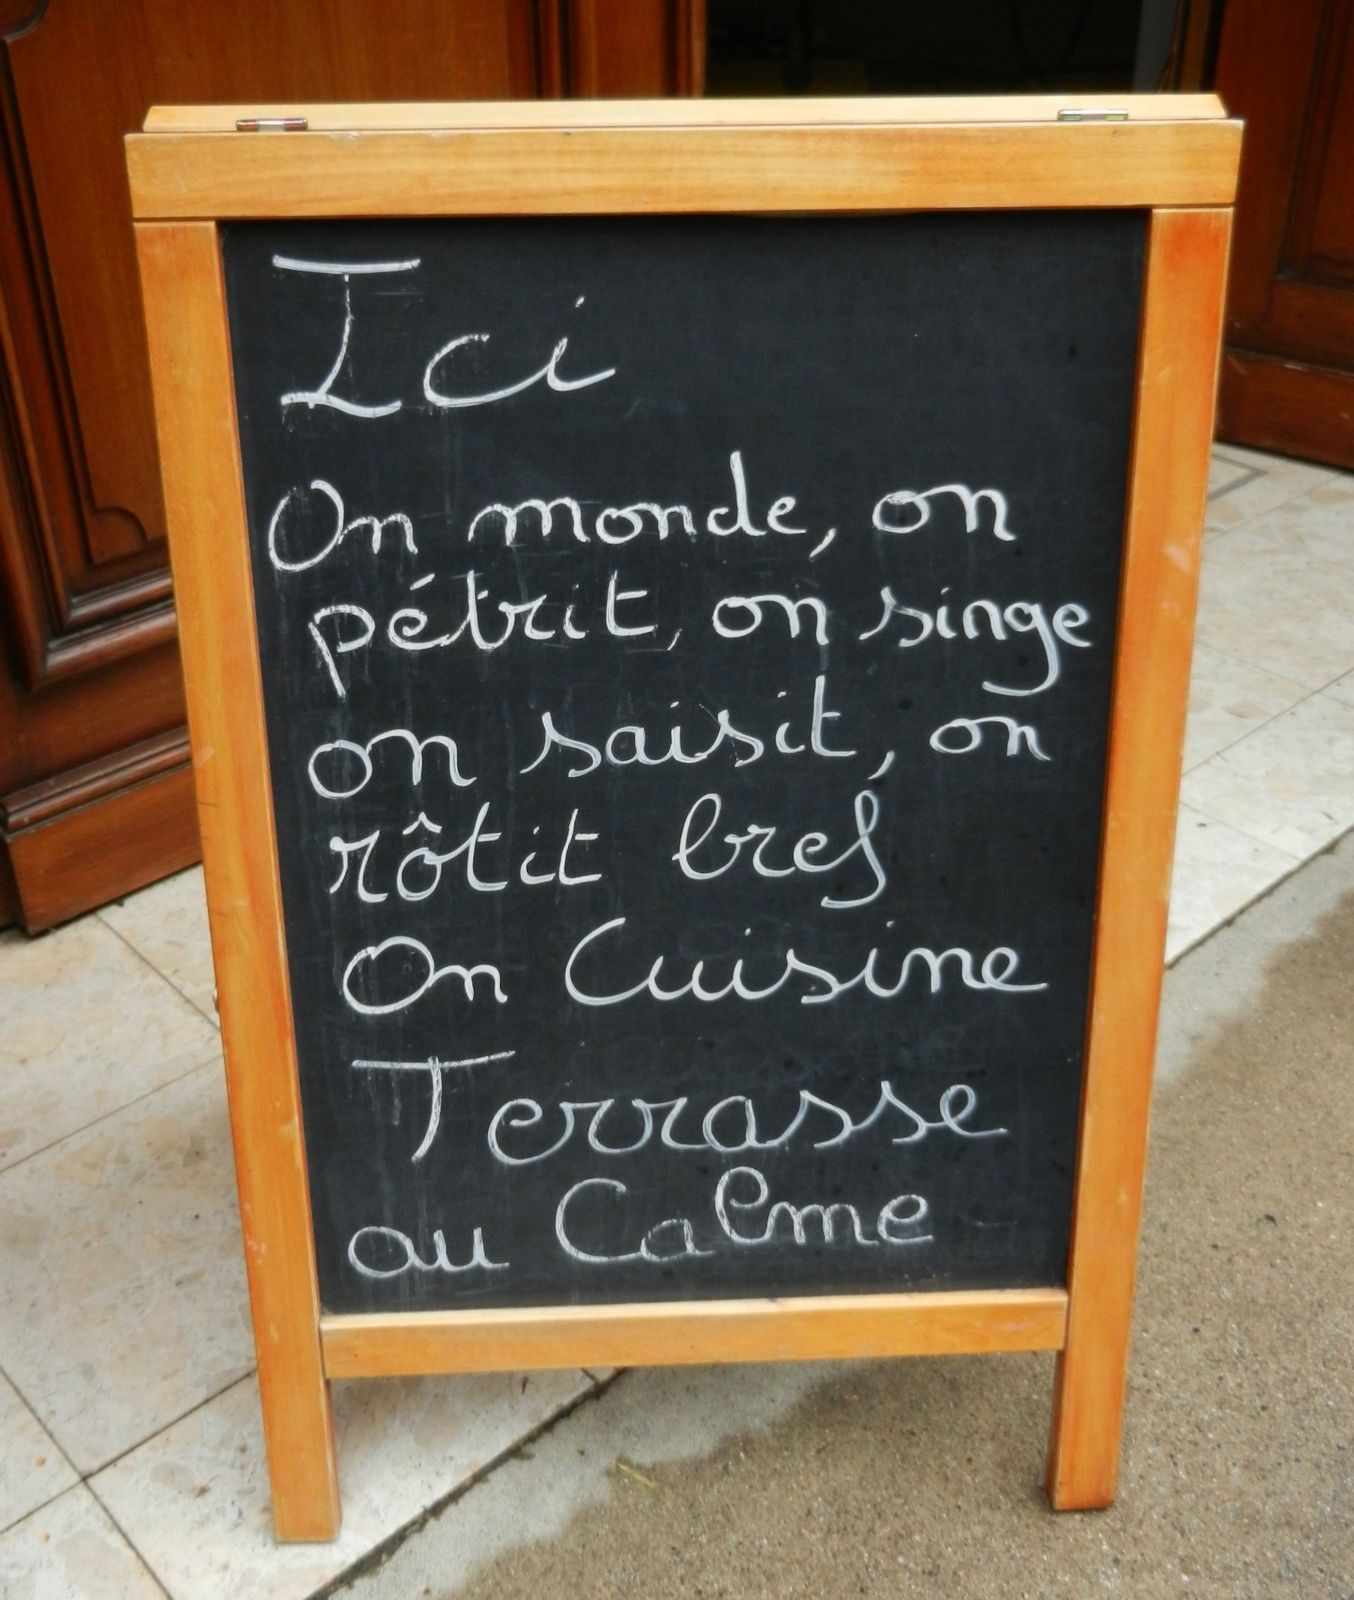 Ici
On monde, on
pétrit, on singe
on saisit, on
rôtit bref
On Cuisine
Terrasse
au Calme